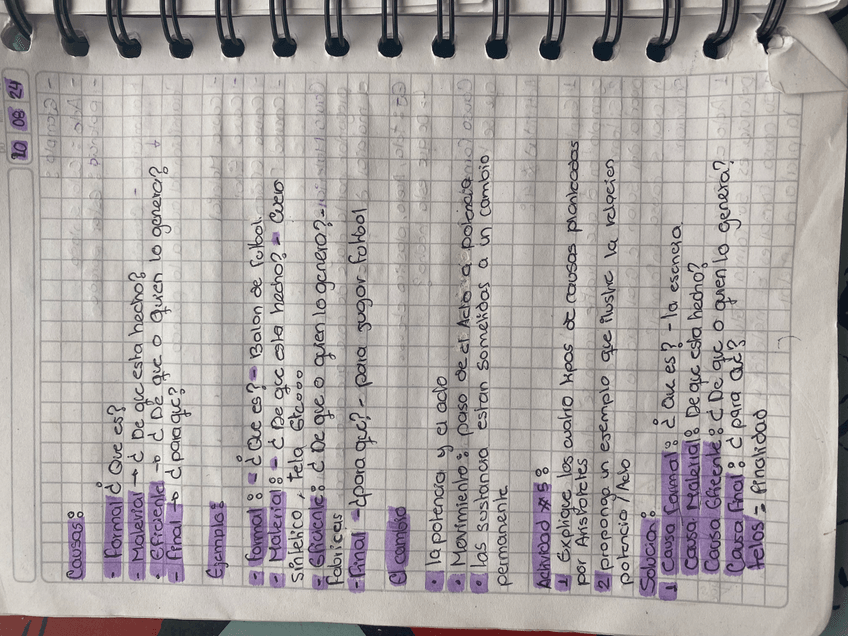 20 08 24
Causas:
- Formal ¿ Que es?
- Material → ¿ De que esta hecho?
• Eficiente → ¿ De que o quien lo genera?
- Final → ¿para que?
Ejemplo:
- Formal: - ¿ Que es? - Balon de futbol.
- Material: - ¿ De que esta hecho? - Cuero
sintetico, tela
- Eficiente: ¿ De que o quien lo genero? -
fabricas
- Final - ¿para que? - para jugar futbol
El cambio
• la potencia y el acto
• Movimiento: paso de el Acto a potencia
• las sustancia estan sometidas a un cambio
permanente
Actividad #5:
1 Explique los cuatro tipos de causas planteadas
por Aristoteles
2 proponga un esemplo que ilustre la relacion
potencia / Acto
Solucion:
1 Causa formal: ¿ Que es? - la esencia.
Causa Material: De que esta hecho?
Causa Eficente: ¿ De que o quien lo genera?
Causa final: ¿ para que?
telos = finalidad